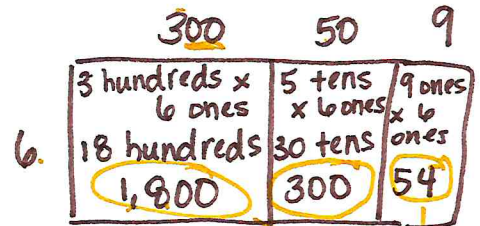 300 50 9
3 hundreds x 6 ones
18 hundreds
1,800
5 tens x 6 ones
30 tens
300
9 ones x 6 ones
54
6.